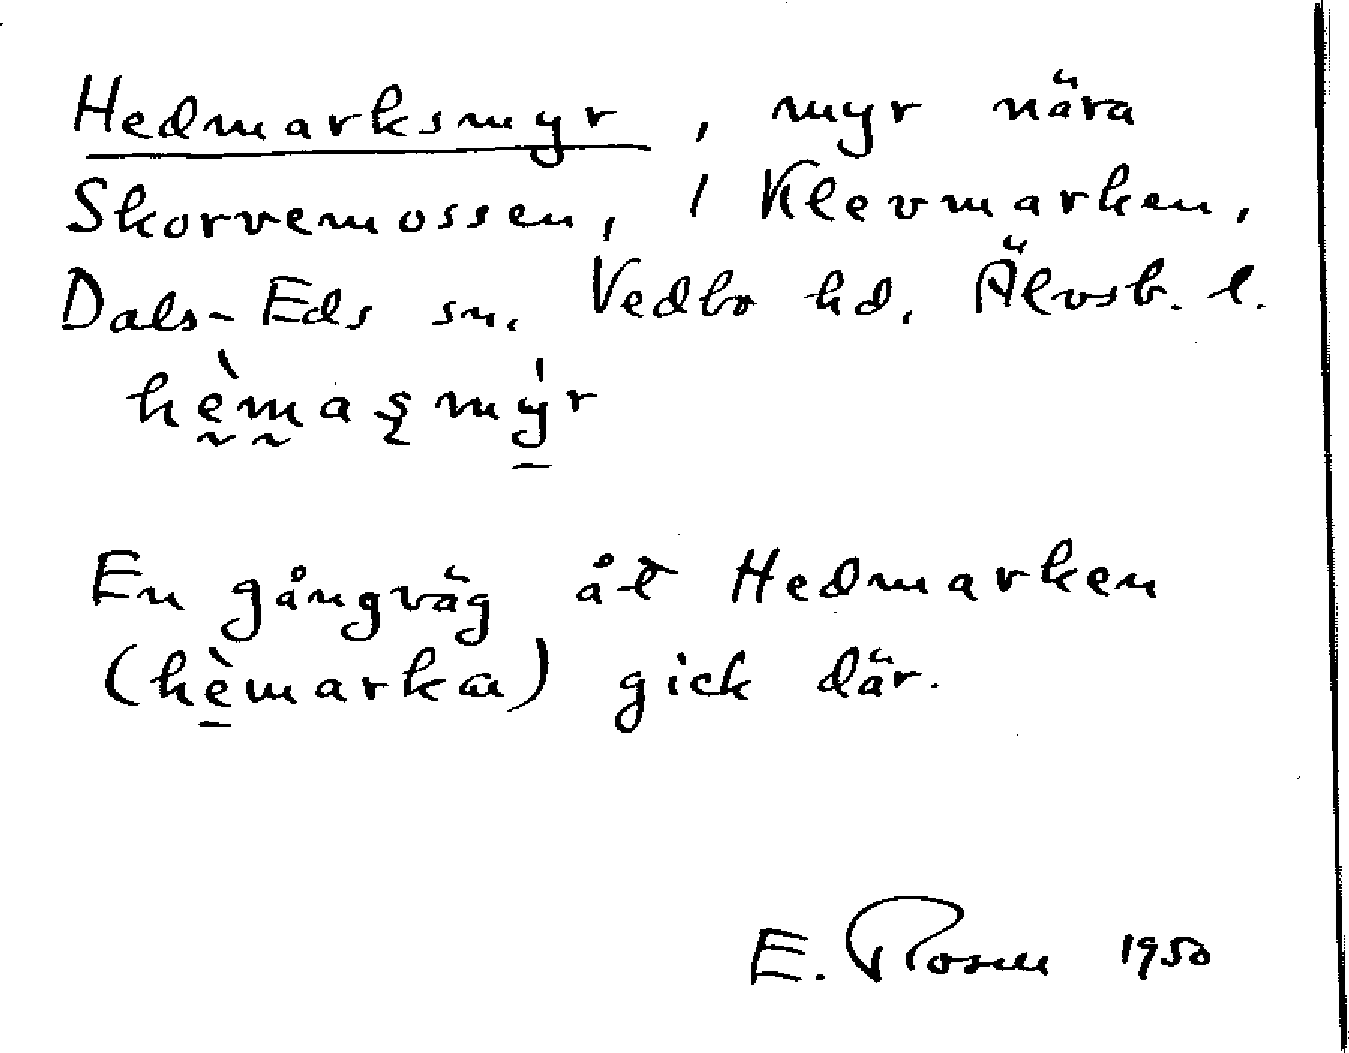 Hedmarksmyr, myr nära
Skorvemossen, / Klevmarken,
Dals-Eds sn. Vedbo hd. Älvsb. l.
hèmaşmýr
En gångväg åt Hedmarken
(hèmarkɷ) gick där.
E. Rosen 1950